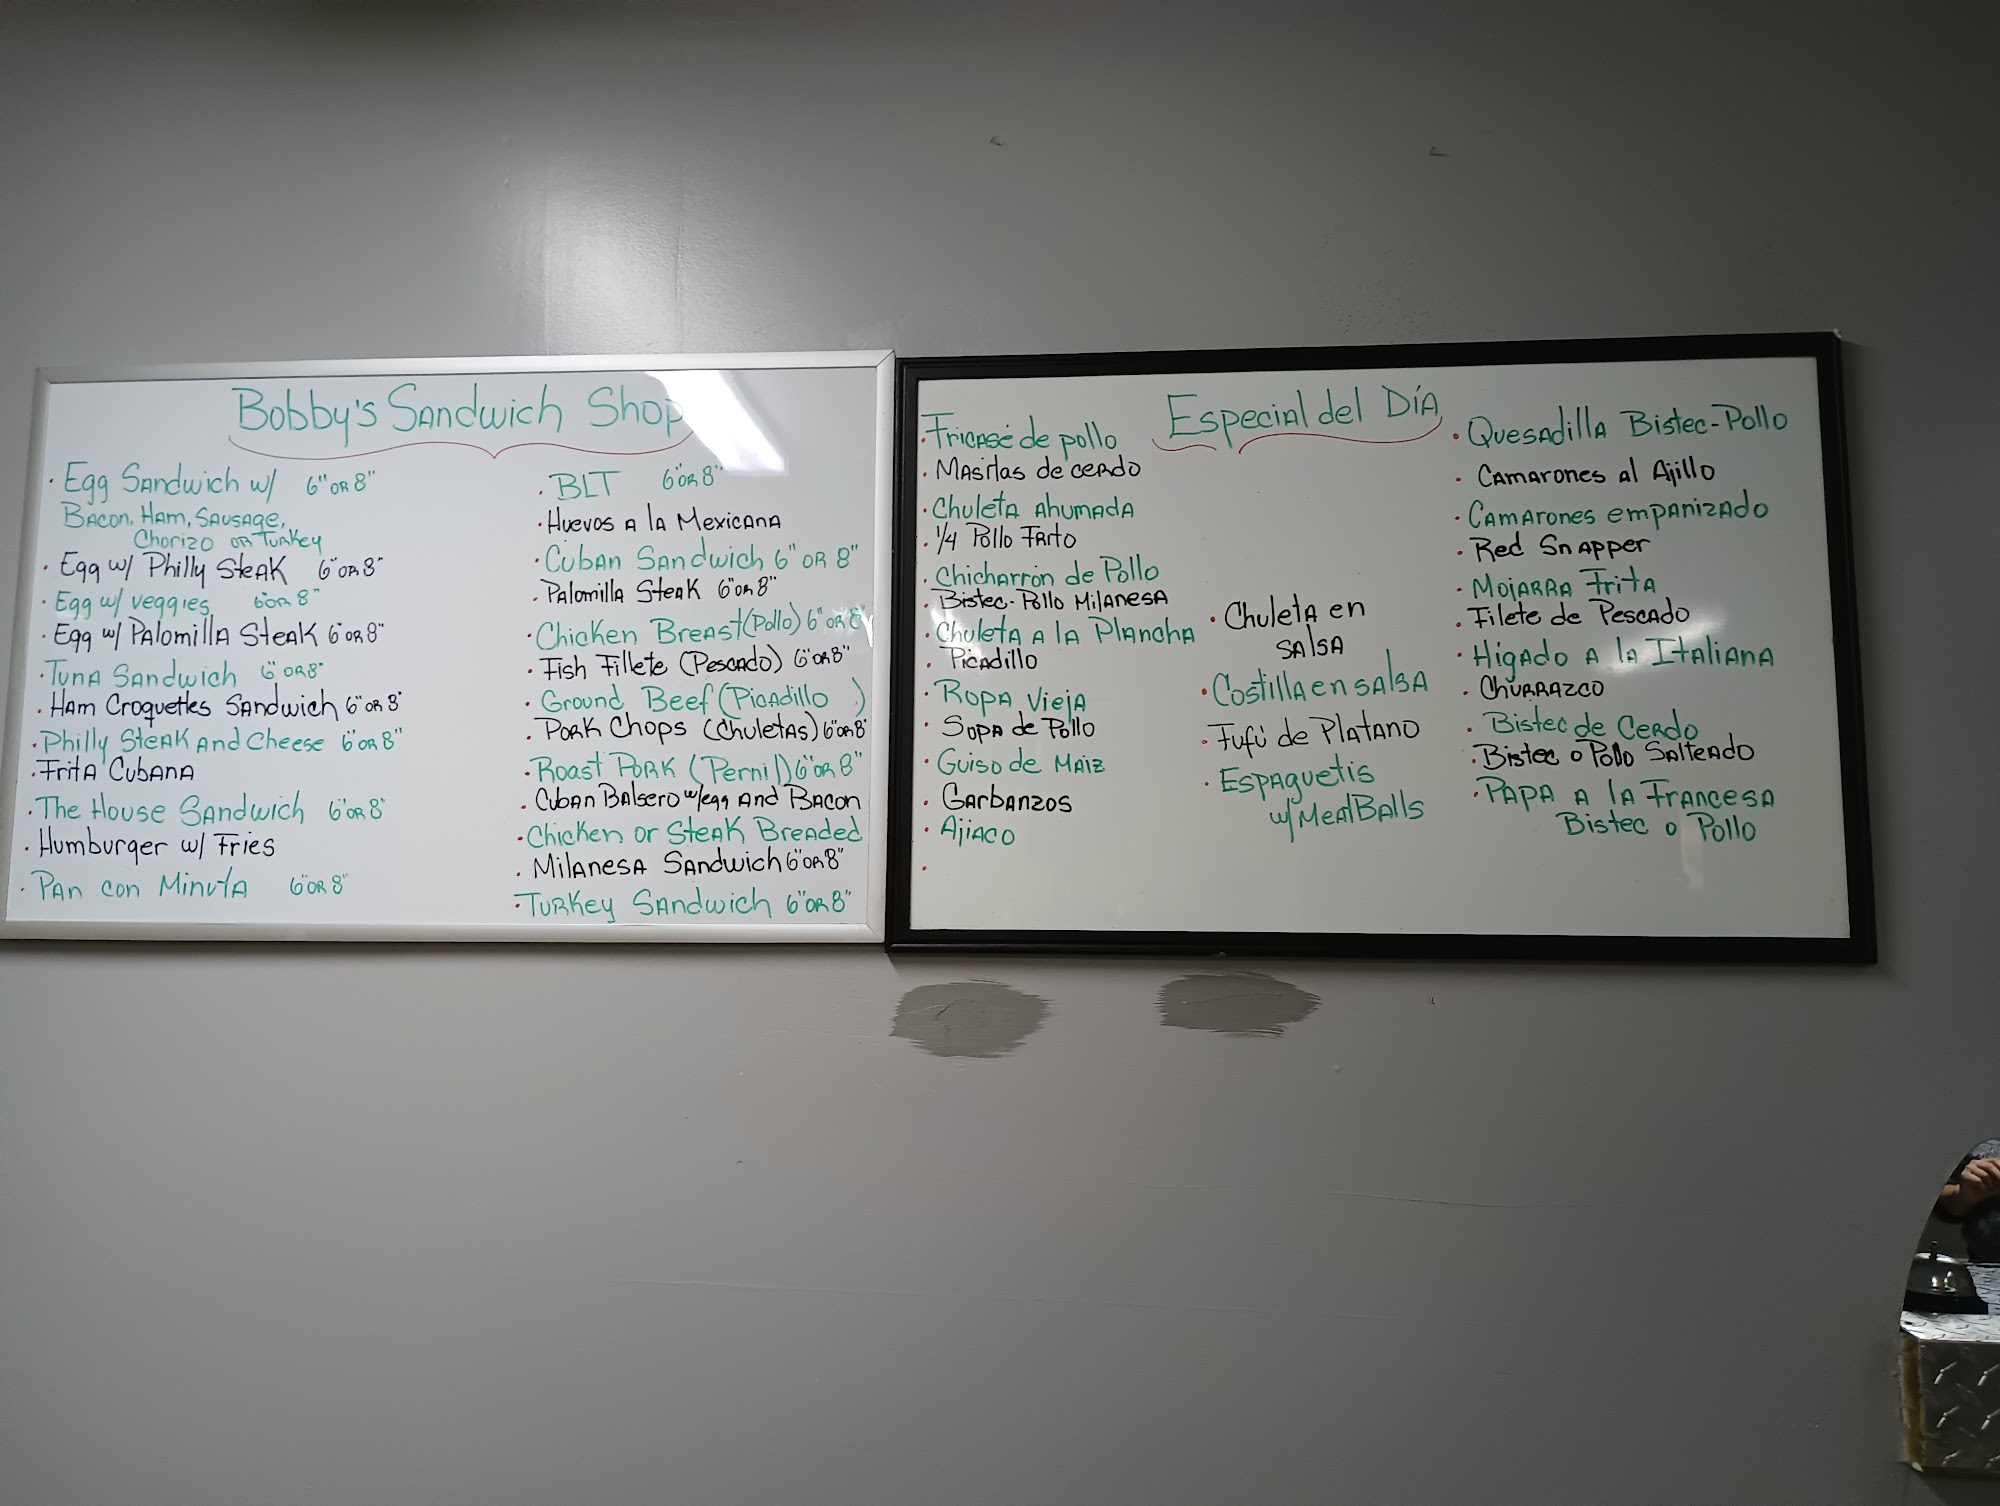 Bobby's Sandwich Shop
· Egg Sandwich w/ 6" OR 8"
Bacon, Ham, Sausage,
Chorizo or Turkey
· Egg w/ Philly Steak 6" OR 8"
· Egg w/ veggies 6" OR 8"
· Egg w/ Palomilla Steak 6" OR 8"
· Tuna Sandwich 6" OR 8"
· Ham Croquettes Sandwich 6" OR 8"
· Philly Steak And Cheese 6" OR 8"
· Frita Cubana
· The House Sandwich 6" OR 8"
· Humburger w/ Fries
· Pan con Minuta 6" OR 8"
· BLT 6" OR 8"
· Huevos a la Mexicana
· Cuban Sandwich 6" OR 8"
· Palomilla Steak 6" OR 8"
· Chicken Breast (Pollo) 6" OR 8"
· Fish Fillete (Pescado) 6" OR 8"
· Ground Beef (Picadillo )
· Pork Chops (Chuletas) 6" OR 8"
· Roast Pork (Pernil) 6" OR 8"
· Cuban Balsero w/egg And Bacon
· Chicken or Steak Breaded
· Milanesa Sandwich 6" OR 8"
· Turkey Sandwich 6" OR 8"
Especial del Día
· Fricasé de pollo
· Masitas de cerdo
· Chuleta Ahumada
· 1/4 Pollo Frito
· Chicharrón de Pollo
· Bistec-Pollo Milanesa
· Chuleta a la Plancha
· Picadillo
· Ropa Vieja
· Sopa de Pollo
· Guiso de Maiz
· Garbanzos
· Ajiaco
· Chuleta en
salsa
· Costilla en salsa
· Fufú de Platano
· Espaguetis
w/ MeatBalls
· Quesadilla Bistec-Pollo
· Camarones al Ajillo
· Camarones empanizado
· Red Snapper
· Mojarra Frita
· Filete de Pescado
· Higado a la Italiana
· Churrazco
· Bistec de Cerdo
· Bistec o Pollo Salteado
· Papa a la Francesa
Bistec o Pollo